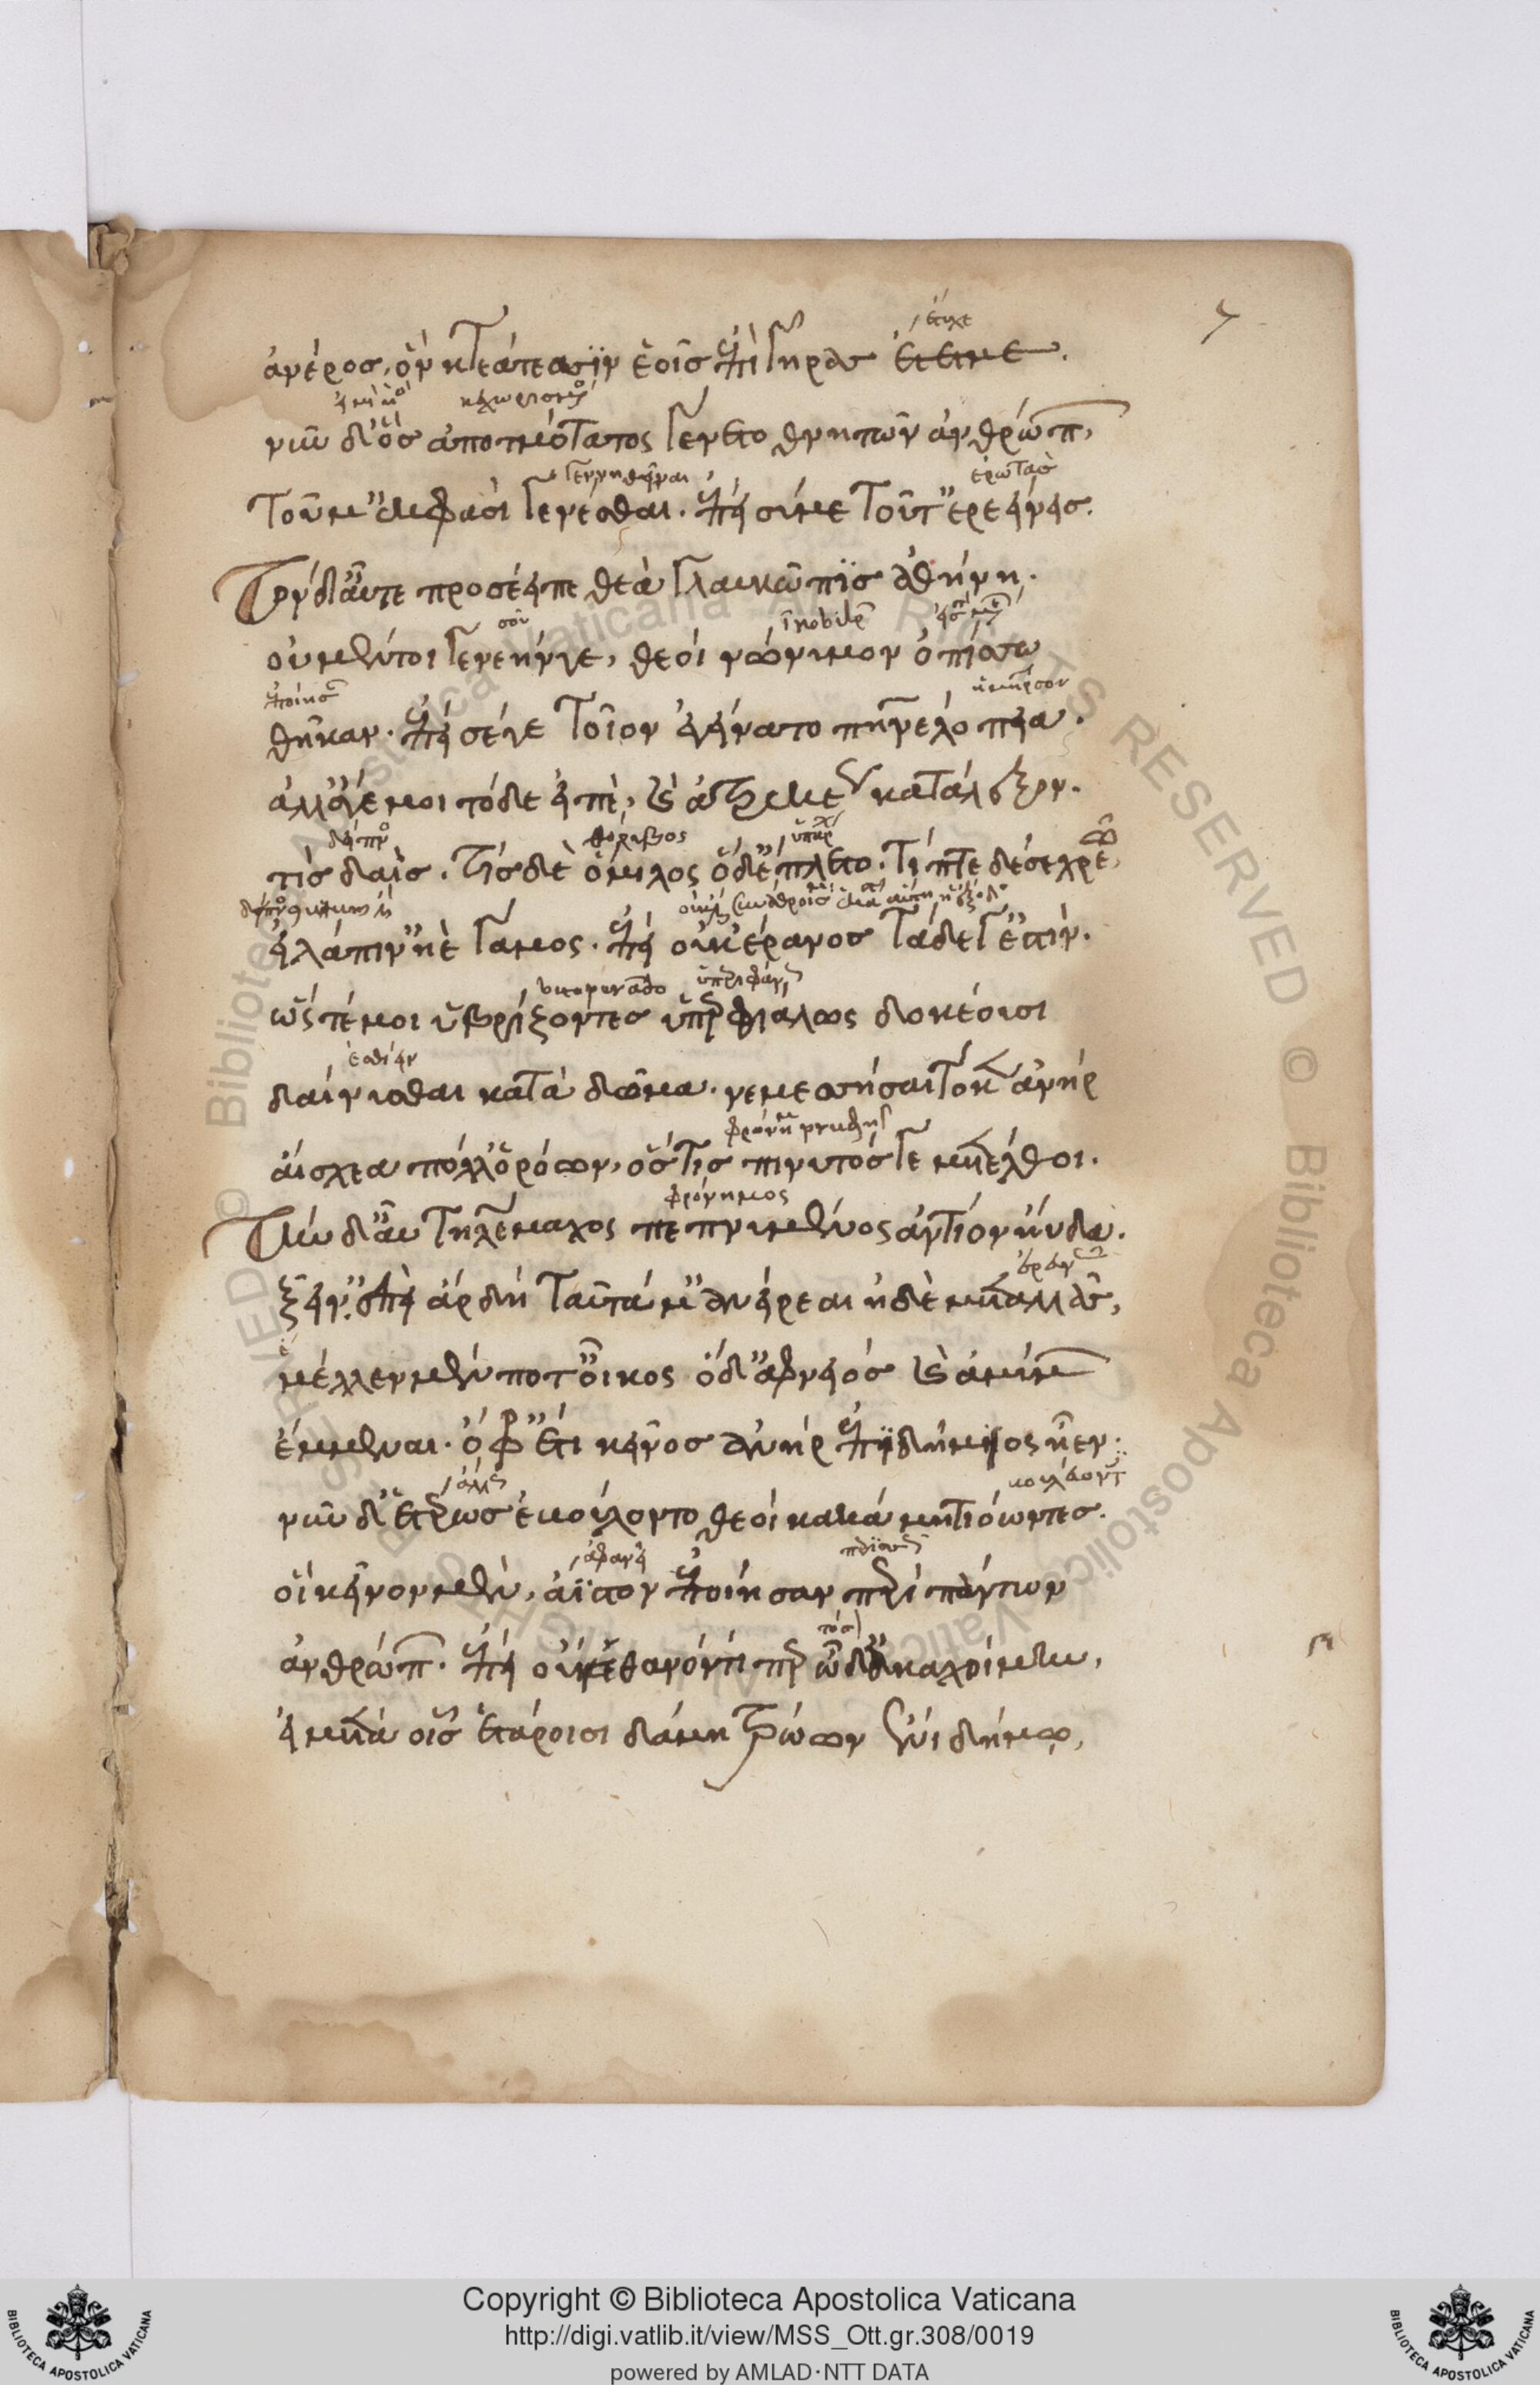 7
ἔτυχε
ἀνέρος, ὃν κτεάτεσσϊν ἑοῖς ἐπὶ γῆρας ἔτετμε.
νῦν δ' ὃς ἀποτμότατος γένετο θνητῶν ἀνθρώπ,
γεννηθῆναι ἐρωτᾶς
τοῦ μ' ἐκ φασὶ γενέσθαι. ἐπεί σύ με τοῦτ' ἐρεείνεις.
Τὸν δ' αὖτε προσέειπε θεὰ γλαυκῶπϊς ἀθήνη.
σου
οὐ μέν τοι γενεήνγε, θεοὶ νώνυμον ὀπίσσω
θῆκαν. ἐπεί σέγε τοῖον ἐγείνατο πηνελόπεια.
ἀλλ' ἄγε μοι τόδε εἰπὲ, καὶ ἀτρεκέως κατάλεξον.
θόρυβος
τίς δαὶς. τίς δὲ ὅμιλος ὅδ' ἔπλετο. τίπτε δέ σε χρεὼ,
εἰλάπιν' ἠὲ γάμος. ἐπεὶ οὐκ ἔρανος τάδε γ' ἐστίν.
ὥς τέ μοι ὑβρίζοντες ὑπερφιάλως δοκέουσι
ἐσθίειν
δαίνυσθαι κατὰ δῶμα. νεμεσήσαιτό κεν ἀνὴρ
αἴσχεα πόλλ' ὁρόων, ὅς τις πινυτός γε μετέλθοι.
φρόνιμος
Τὴν δ' αὖ τηλέμαχος πεπνυμένος ἀντίον ηὔδα.
ξεῖν'. ἐπεὶ ἂρ δὴ ταῦτά μ' ἀνείρεαι ἠδὲ μεταλλᾶς,
μέλλεν μέν ποτ' οἶκος ὅδ' ἀφνειὸς καὶ ἀμύμων
ἔμμεναι. ὄφρ' ἔτι κεῖνος ἀνὴρ ἐπϊδήμιος ἦεν.
νῦν δ' ἑτέρως ἐβούλοντο θεοὶ κακά μητιόωντες.
οἳ κεῖνον μὲν, ἄϊστον ἐποίησαν περὶ πάντων
ἀνθρώπ. ἐπεὶ οὔ κε θανόντι περ ὧδ' ἀκαχοίμην,
εἰ μετὰ οἷς ἑτάροισι δάμη τρώων ἐνὶ δήμῳ,
Copyright © Biblioteca Apostolica Vaticana
http://digi.vatlib.it/view/MSS_Ott.gr.308/0019
powered by AMLAD·NTT DATA